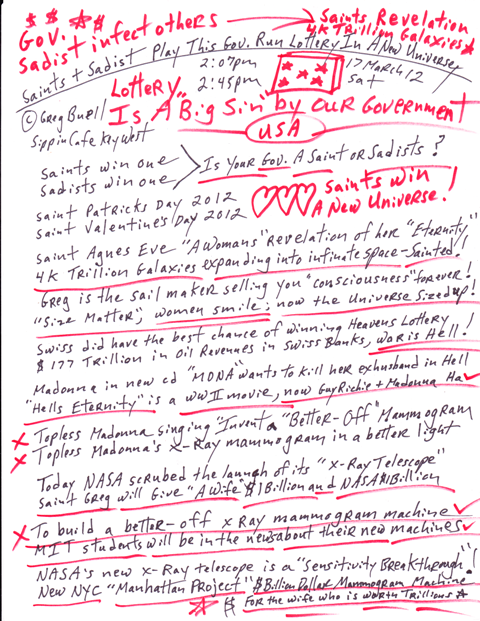 $ $ ★ $
Gov. ★
Sadist infect others → Saints Revelation
4K Trillion Galaxies ★
Saints + Sadist Play This Gov. Run Lottery In A New Universe
2:07pm
2:45pm
17 March 12
Sat
Lottery
Is A Big Sin" by our Government
© Greg Buell
Sippin Cafe Key West
USA
Saints win one
Sadists win one
Is Your Gov. A Saint or Sadists?
Saint Patricks Day 2012
Saint Valentine's Day 2012
Saints win
A New Universe!
Saint Agnes Eve "A Womans" Revelation of her "Eternity"
4K Trillion Galaxies expanding into infinate space - Sainted!
Greg is the sail maker selling you "consciousness" forever!
"Size Matter; women smile; now the Universe Sized up!
Swiss did have the best chance of winning Heavens Lottery
$177 Trillion in Oil Revenues in Swiss Banks, War is Hell!
Madonna in new cd "MDNA" wants to kill her exhusband in Hell
"Hells Eternity" is a WW II movie, now Guy Richie + Madonna Ha ✓
x Topless Madonna singing "Invent a "Better-Off" Mammogram
x Topless Madonna's X-Ray mammogram in a better light
Today NASA scrubed the launch of its "X-Ray Telescope"
Saint Greg will Give "A Wife" $1 Billion and NASA $1 Billion
x To build a better-off x Ray mammogram machine ✓
MIT students will be in the news about their new machines ✓
NASA's new x-Ray telescope is a "Sensitivity Breakthrough"!
New NYC "Manhattan Project" $Billion Dollar Mammogram Machine
★ $ For the wife who is worth Trillions ★